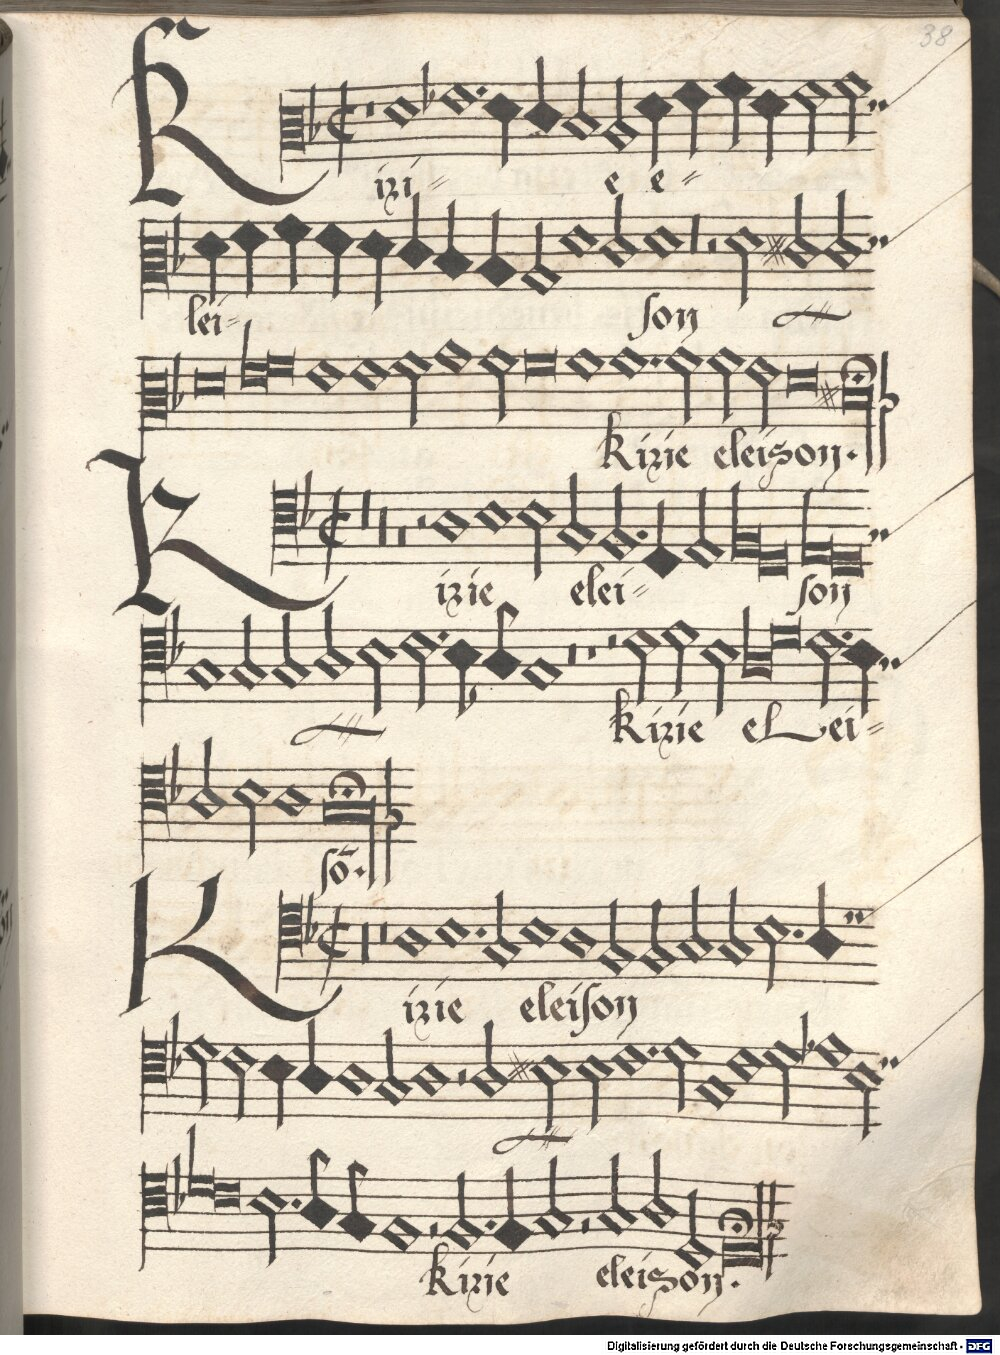 38
Kizi= e e=
lei= son
kizie eleison.
Kizie elei= son
kizie eLei=
sō.
Kizie eleison
kizie eleison.
Digitalisierung gefördert durch die Deutsche Forschungsgemeinschaft - DFG